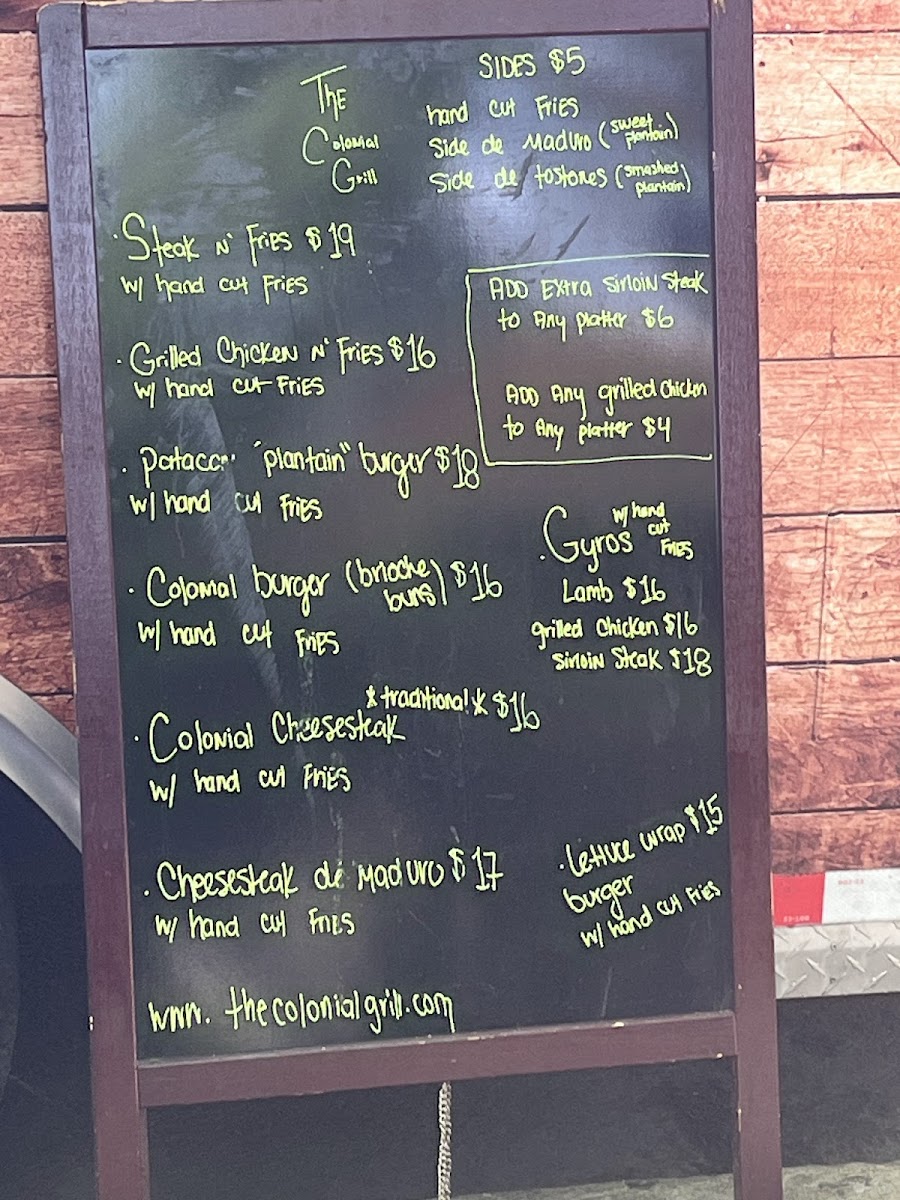 The
Colonial
Grill
SIDES $5
hand cut Fries
Side de Maduro (sweet plantain)
Side de tostones (smashed plantain)
·Steak N' Fries $19
w/ hand cut Fries
ADD Extra Sirloin Steak
to Any platter $6
ADD Any grilled chicken
to Any platter $4
·Grilled Chicken N' Fries $16
w/ hand cut Fries
·"plantain" burger $18
w/ hand cut Fries
·Gyros w/ hand cut Fries
Lamb $16
grilled Chicken $16
Sirloin Steak $18
·Colonial burger (brioche buns) $16
w/ hand cut Fries
·Colonial Cheesesteak *traditional* $16
w/ hand cut Fries
·Cheesesteak de Maduro $17
w/ hand cut Fries
·Lettuce wrap $15
burger
w/ hand cut Fries
www.thecolonialgrill.com